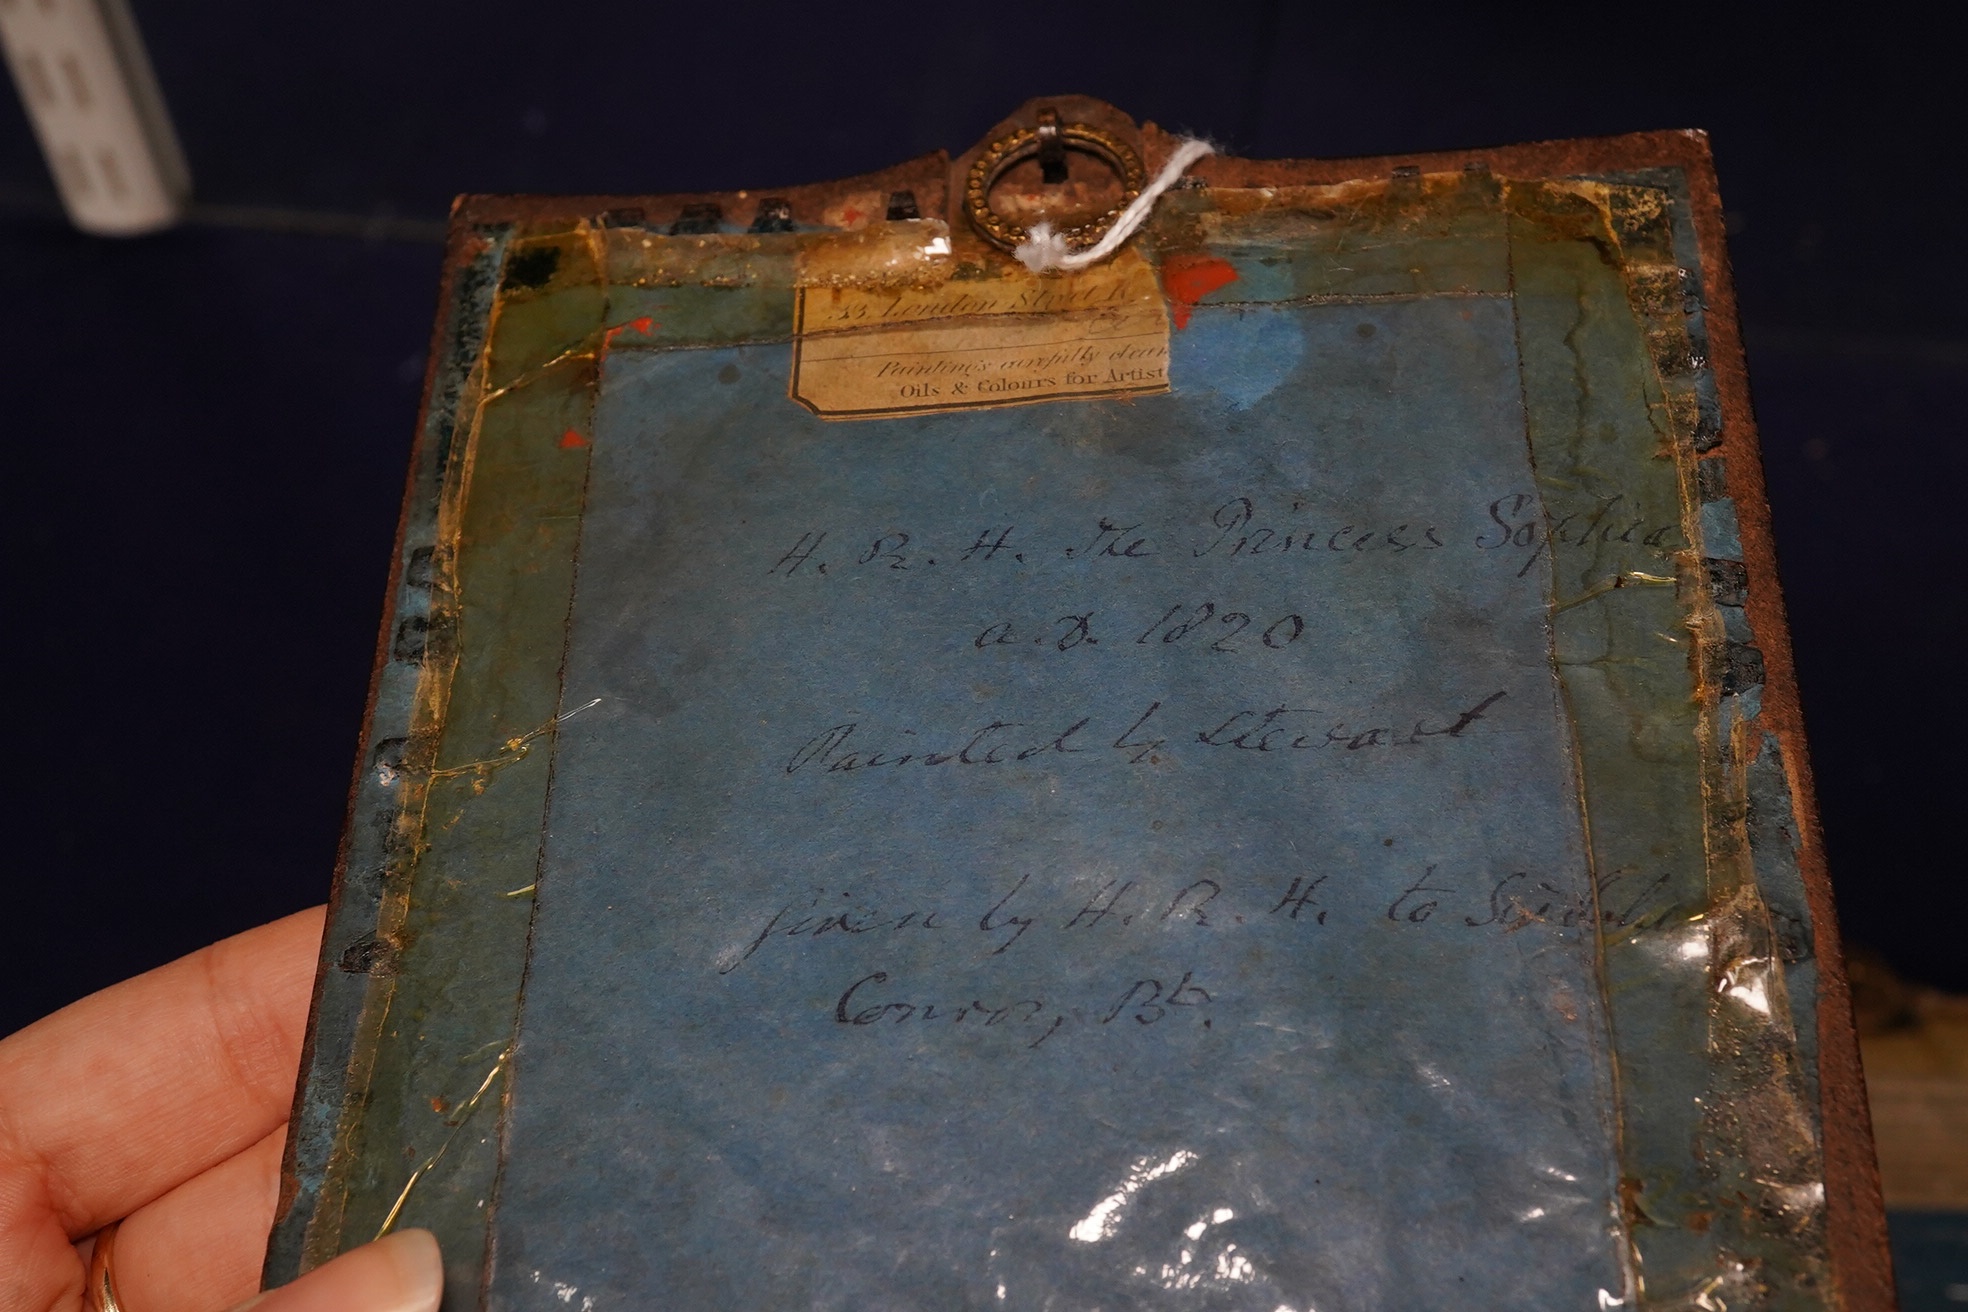 33, London Street
Paintings carefully clean
Oils & Colours for Artist
H. R. H. The Princess Sophia
a.D. 1820
Painted by Stewart
given by H. R. H. to
Conroy, Bt.